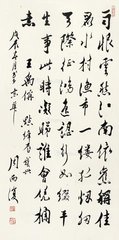 雨恨雲愁江南依舊稱佳
麗水村漁市一縷孤烟細
天際征鴻遙認行如綴平
生事此時凝睇誰會憑欄
意
王禹偁 點絳唇 感興
周而復